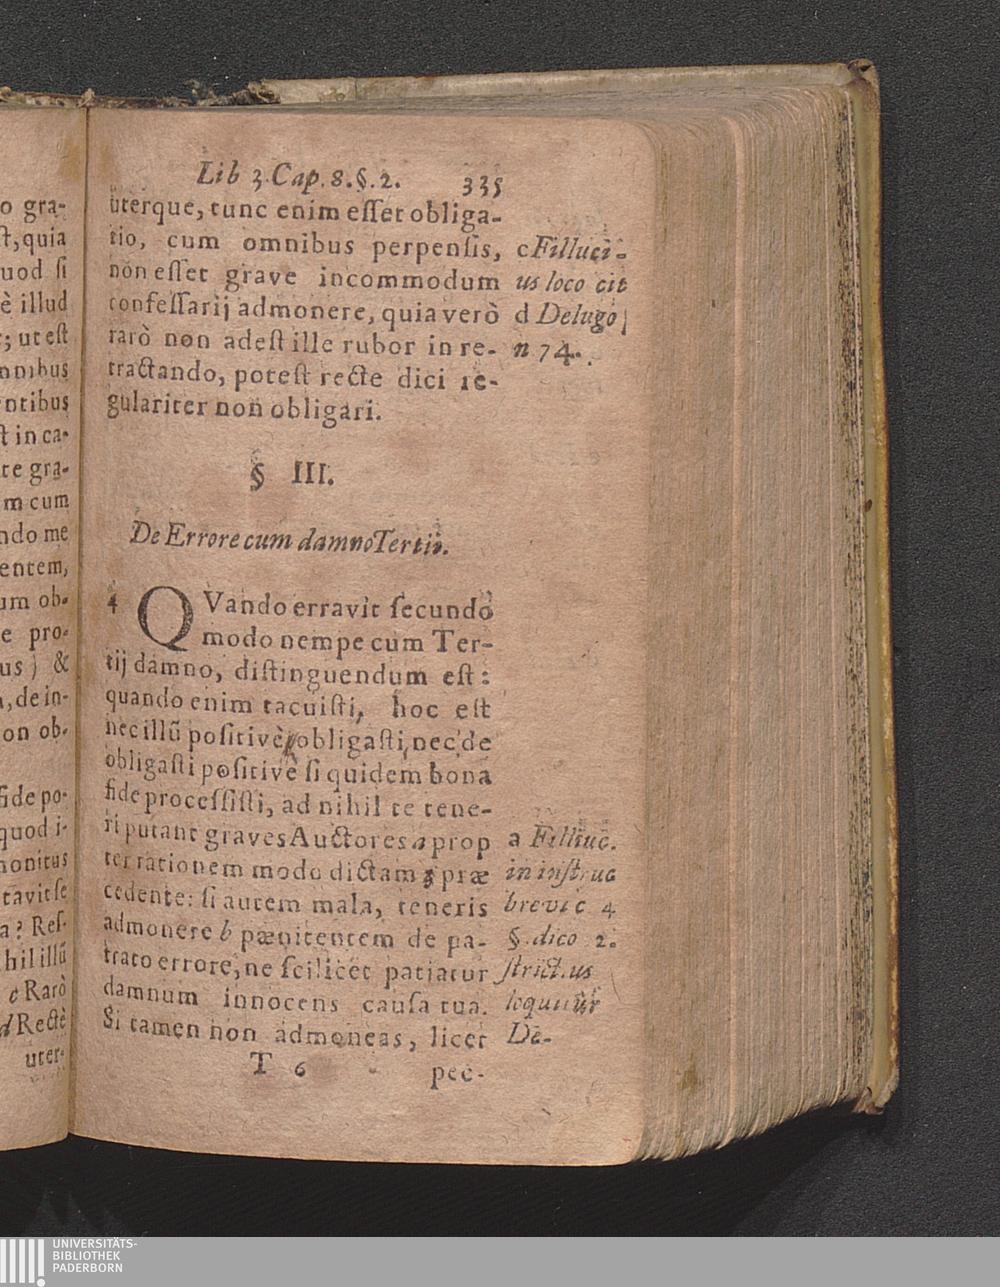 o gra-
st, quia
uod si
è illud
; ut est
mnibus
ntibus
st in ca-
te gra-
m cum
ndo me
entem,
um ob-
e pro-
us) &
, de in-
on ob-
fide po-
quod i-
monitus
tavit se
a? Res-
hil illũ
c Rarò
d Rectè
uter-
Lib 3. Cap. 8. §. 2. 335
uterque, tunc enim esset obliga-
tio, cum omnibus perpensis,
non esset grave incommodum
confessarij admonere, quia verò
rarò non adest ille rubor in re-
tractando, potest recte dici re-
gulariter non obligari.
c Filluci-
us loco cit
d Delugo
n 74.
§ III.
De Errore cum damno Tertii.
4 QVando erravit secundo
modo nempe cum Ter-
tij damno, distinguendum est:
quando enim tacuisti, hoc est
nec illũ positivè obligasti, nec de
obligasti positivè si quidem bona
fide processisti, ad nihil te tene-
ri putant graves Auctores a prop
ter rationem modo dictam præ
cedente: si autem mala, teneris
admonere b pænitentem de pa-
trato errore, ne scilicet patiatur
damnum innocens causa tua.
Si tamen non admoneas, licet
a Filliuc.
in instruc
brevi c 4
§. dico 2.
strict. us
loquitur
De-
T 6 pec-
UNIVERSITÄTS-
BIBLIOTHEK
PADERBORN